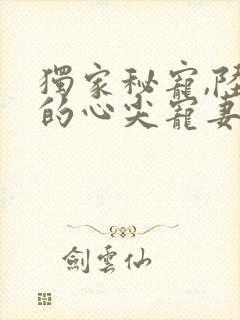 獨家秘寵,陸
的心尖寵妻
劍雲仙